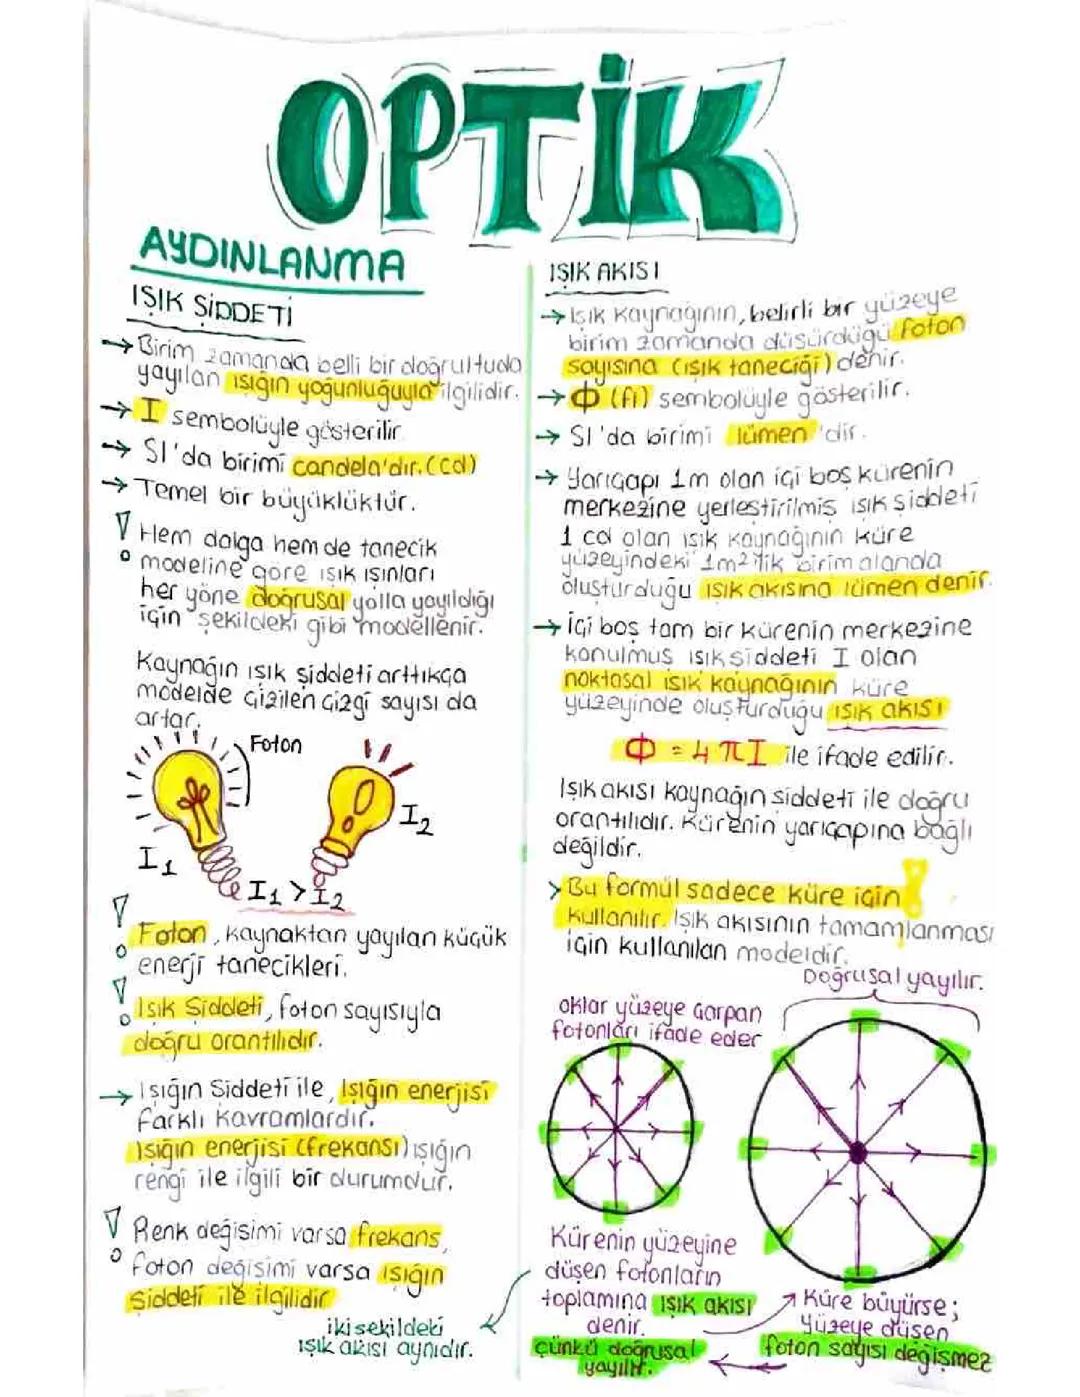 OPTİK
AYDINLANMA
IŞIK ŞİDDETİ
→ Birim zamanda belli bir doğrultuda
yayılan ışığın yoğunluğuyla ilgilidir.
→ I sembolüyle gösterilir
→ SI'da birimi candela'dır. (cd)
→ Temel bir büyüklüktür.
! Hem dalga hem de tanecik
modeline göre ışık ışınları
her yöne doğrusal yolla yayıldığı
için şekildeki gibi modellenir.
Kaynağın ışık şiddeti arttıkça
modelde çizilen çizgi sayısı da
artar.
Foton
I₁
I₂
I₁ > I₂
! Foton, kaynaktan yayılan küçük
enerji tanecikleri.
! Işık Şiddeti, foton sayısıyla
doğru orantılıdır.
→ Işığın Şiddeti ile, ışığın enerjisi
farklı kavramlardır.
Işığın enerjisi (frekansı) ışığın
rengi ile ilgili bir durumdur.
! Renk değişimi varsa frekans,
foton değişimi varsa ışığın
şiddeti ile ilgilidir
iki şekildeki
ışık akısı aynıdır.
IŞIK AKISI
→ Işık kaynağının, belirli bir yüzeye
birim zamanda düşürdüğü foton
sayısına (ışık taneciği) denir.
→ Φ (fi) sembolüyle gösterilir.
→ SI'da birimi lümen'dir.
→ Yarıçapı 1m olan içi boş kürenin
merkezine yerleştirilmiş ışık şiddeti
1 cd olan ışık kaynağının küre
yüzeyindeki 1m²'lik birim alanda
oluşturduğu ışık akısına lümen denir.
→ İçi boş tam bir kürenin merkezine
konulmuş ışık şiddeti I olan
noktasal ışık kaynağının küre
yüzeyinde oluşturduğu ışık akısı
Φ = 4πI ile ifade edilir.
Işık akısı kaynağın şiddeti ile doğru
orantılıdır. Kürenin yarıçapına bağlı
değildir.
> Bu formül sadece küre için !
kullanılır. Işık akısının tamamlanması
için kullanılan modeldir.
Doğrusal yayılır.
oklar yüzeye çarpan
fotonları ifade eder
Kürenin yüzeyine
düşen fotonların
toplamına ışık akısı
denir.
çünkü doğrusal
yayılır.
Küre büyürse;
Yüzeye düşen
foton sayısı değişmez